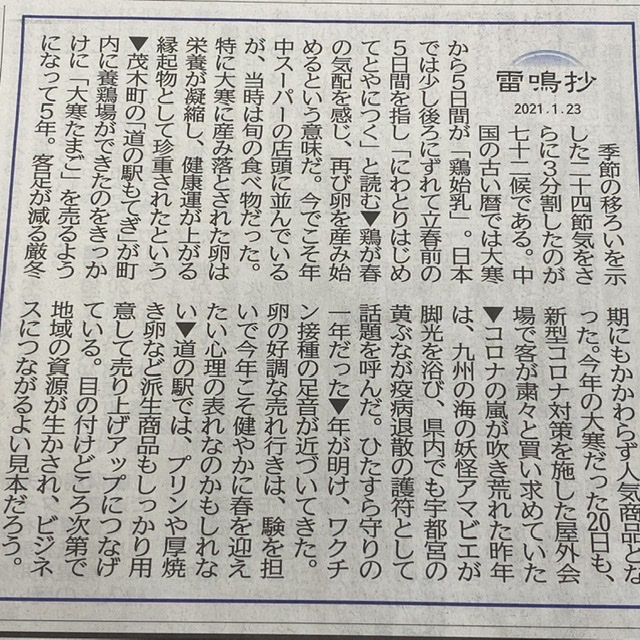 雷鳴抄
2021.1.23
季節の移ろいを示
した二十四節気をさ
らに３分割したのが
七十二候である。中
国の古い暦では大寒
から５日間が「鶏始乳」。日本
では少し後ろにずれて立春前の
５日間を指し「にわとりはじめ
てとやにつく」と読む▼鶏が春
の気配を感じ、再び卵を産み始
めるという意味だ。今でこそ年
中スーパーの店頭に並んでいる
が、当時は旬の食べ物だった。
特に大寒に産み落とされた卵は
栄養が凝縮し、健康運が上がる
縁起物として珍重されたという
▼茂木町の「道の駅もてぎ」が町
内に養鶏場ができたのをきっか
けに「大寒たまご」を売るよう
になって５年。客足が減る厳冬
期にもかかわらず人気商品とな
った。今年の大寒だった20日も、
新型コロナ対策を施した屋外会
場で客が粛々と買い求めていた
▼コロナの嵐が吹き荒れた昨年
は、九州の海の妖怪アマビエが
脚光を浴び、県内でも宇都宮の
黄ぶなが疫病退散の護符として
話題を呼んだ。ひたすら守りの
一年だった▼年が明け、ワクチ
ン接種の足音が近づいてきた。
卵の好調な売れ行きは、験を担
いで今年こそ健やかに春を迎え
たい心理の表れなのかもしれな
い▼道の駅では、プリンや厚焼
き卵など派生商品もしっかり用
意して売り上げアップにつなげ
ている。目の付けどころ次第で
地域の資源が生かされ、ビジネ
スにつながるよい見本だろう。